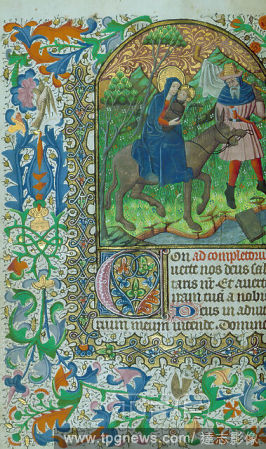 Con ad completoriu
uerte nos deus sal
taris nr̄. Et auerte
iram tuā a nobis
Deus in adiu
torium meum intende. Domine
www.tpgnews.com/達志影像